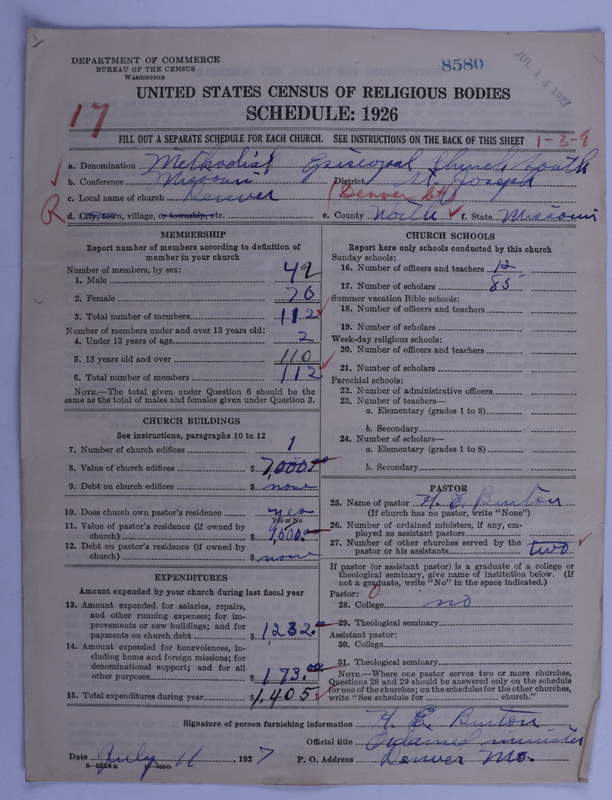 DEPARTMENT OF COMMERCE
BUREAU OF THE CENSUS
WASHINGTON
8580
JUL 14 1927
UNITED STATES CENSUS OF RELIGIOUS BODIES
SCHEDULE: 1926
17
FILL OUT A SEPARATE SCHEDULE FOR EACH CHURCH. SEE INSTRUCTIONS ON THE BACK OF THIS SHEET
1-3-9
a. Denomination Methodist Episcopal Church South
b. Conference Missouri District St Joseph
c. Local name of church Denver (Denver Ct)
R
d. City, town, village, or township, etc. e. County Worth f. State Missouri
MEMBERSHIP
Report number of members according to definition of
member in your church
Number of members, by sex:
1. Male 42
2. Female 70
3. Total number of members 112
Number of members under and over 13 years old:
4. Under 13 years of age 2
5. 13 years old and over 110
6. Total number of members 112
NOTE.—The total given under Question 6 should be the
same as the total of males and females given under Question 3.
CHURCH BUILDINGS
See instructions, paragraphs 10 to 12
7. Number of church edifices 1
8. Value of church edifices $ 7,000.00
9. Debt on church edifices $ none
10. Does church own pastor's residence yes
Yes or No
11. Value of pastor's residence (if owned by
church) $ 1500.00
12. Debt on pastor's residence (if owned by
church) $ none
EXPENDITURES
Amount expended by your church during last fiscal year
13. Amount expended for salaries, repairs,
and other running expenses; for im-
provements or new buildings; and for
payments on church debt $ 1232.00
14. Amount expended for benevolences, in-
cluding home and foreign missions; for
denominational support; and for all
other purposes $ 173.00
15. Total expenditures during year $ 1,405
CHURCH SCHOOLS
Report here only schools conducted by this church
Sunday schools:
16. Number of officers and teachers 12
17. Number of scholars 85
Summer vacation Bible schools:
18. Number of officers and teachers
19. Number of scholars
Week-day religious schools:
20. Number of officers and teachers
21. Number of scholars
Parochial schools:
22. Number of administrative officers
23. Number of teachers—
a. Elementary (grades 1 to 8)
b. Secondary
24. Number of scholars—
a. Elementary (grades 1 to 8)
b. Secondary
PASTOR
25. Name of pastor H. E. Burton
(If church has no pastor, write "None")
26. Number of ordained ministers, if any, em-
ployed as assistant pastors
27. Number of other churches served by the
pastor or his assistants two
If pastor (or assistant pastor) is a graduate of a college or
theological seminary, give name of institution below. (If
not a graduate, write "No" in the space indicated.)
Pastor:
28. College no
29. Theological seminary
Assistant pastor:
30. College
31. Theological seminary
NOTE.—Where one pastor serves two or more churches,
Questions 28 and 29 should be answered only on the schedule
for one of the churches; on the schedules for the other churches,
write "See schedule for church."
Signature of person furnishing information H. E. Burton
Official title Ordained minister
Date July 11, 1927 P. O. Address Denver Mo.